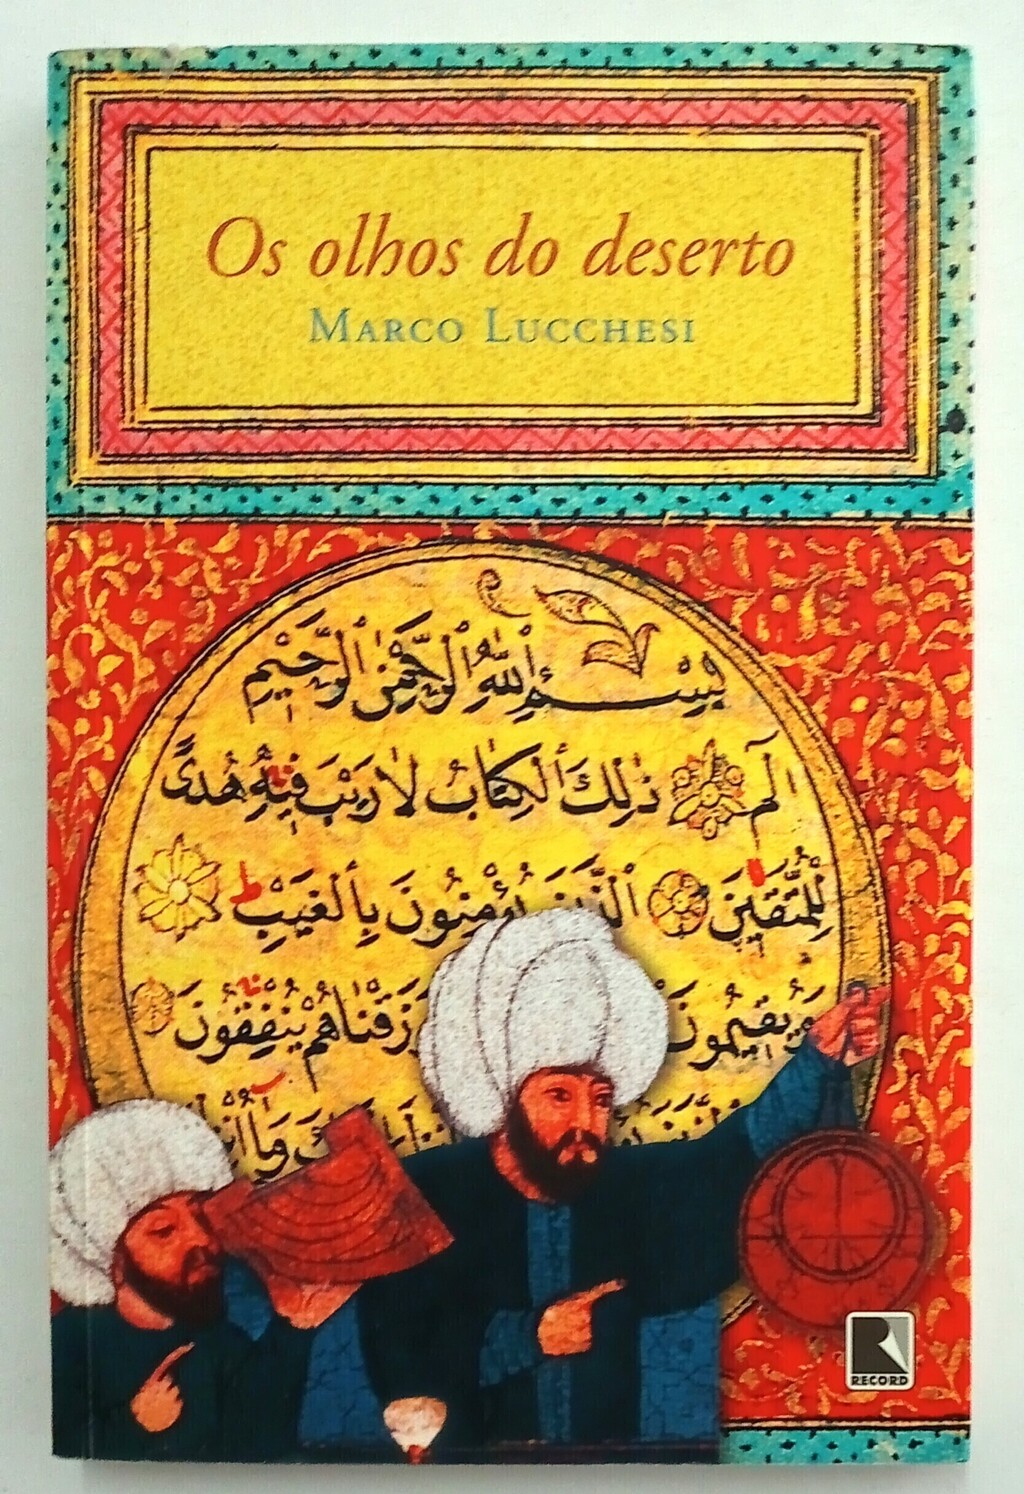 Os olhos do deserto
MARCO LUCCHESI
بِسْمِ ٱللَّهِ ٱلرَّحْمَٰنِ ٱلرَّحِيمِ
الم ذَٰلِكَ ٱلْكِتَابُ لَا رَيْبَ فِيهِ هُدًى
لِّلْمُتَّقِينَ ٱلَّذِينَ يُؤْمِنُونَ بِٱلْغَيْبِ
وَيُقِيمُونَ رَزَقْنَاهُمْ يُنْفِقُونَ
RECORD